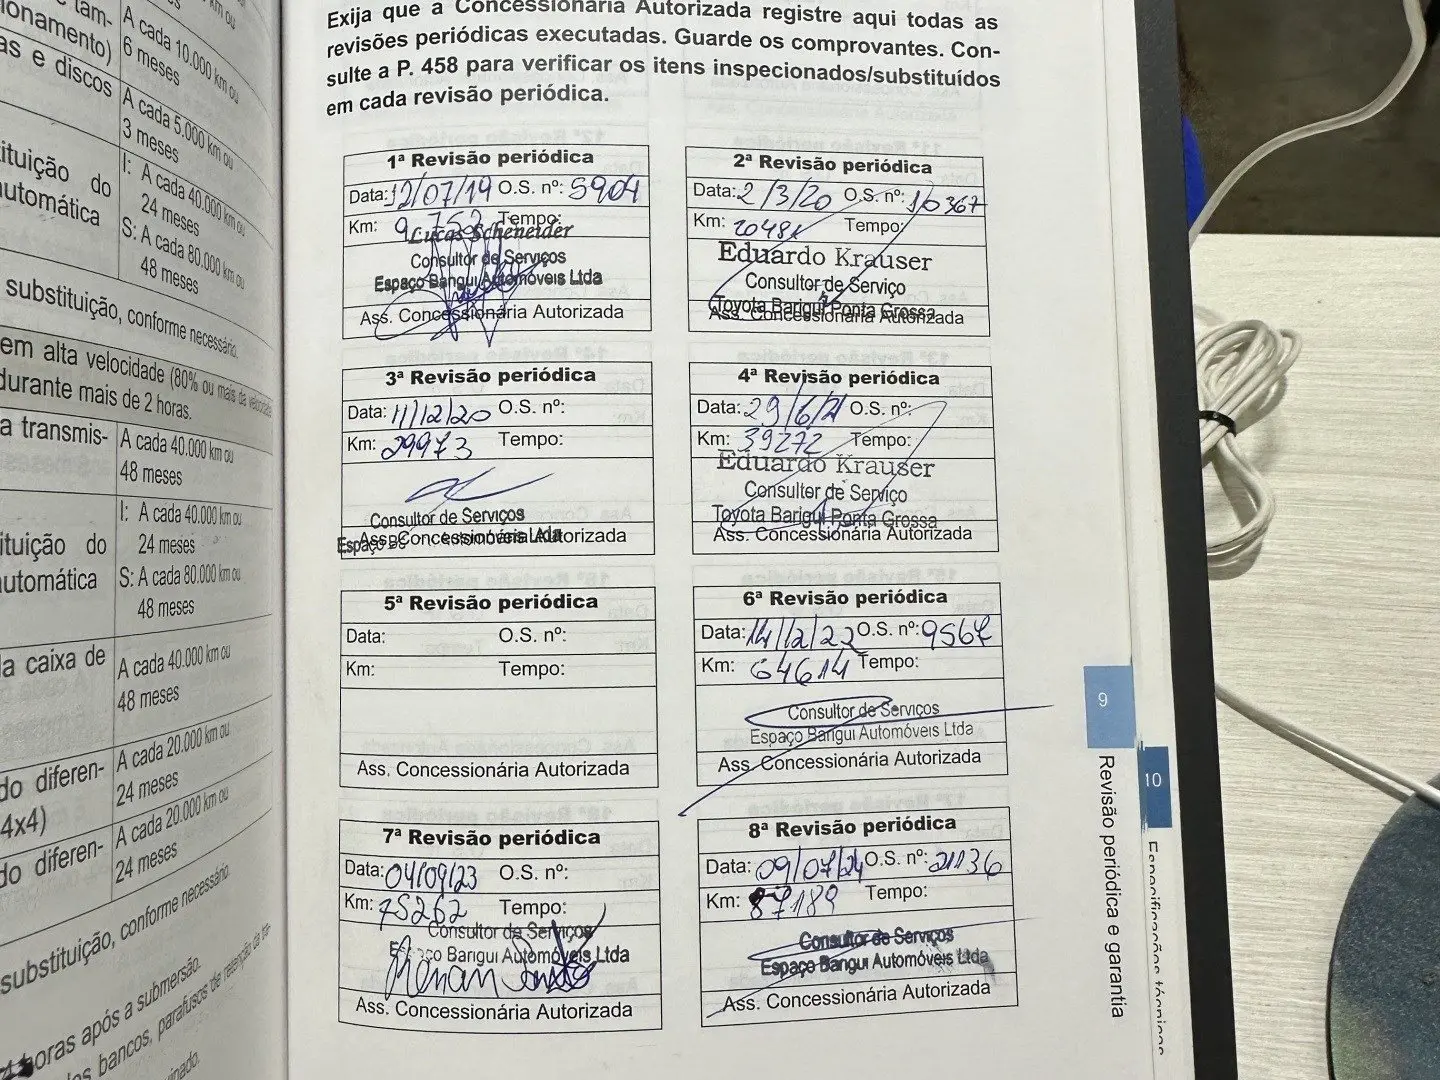 onamento)
as e discos
A cada 10.000 km ou
6 meses
A cada 5.000 km ou
3 meses
ituição do
automática
I: A cada 40.000 km ou
24 meses
S: A cada 80.000 km ou
48 meses
substituição, conforme necessário.
em alta velocidade (80% ou mais da velocidade
durante mais de 2 horas.
a transmis-
A cada 40.000 km ou
48 meses
ituição do
automática
I: A cada 40.000 km ou
24 meses
S: A cada 80.000 km ou
48 meses
la caixa de
A cada 40.000 km ou
48 meses
do diferen-
4x4)
A cada 20.000 km ou
24 meses
do diferen-
A cada 20.000 km ou
24 meses
substituição, conforme necessário.
horas após a submersão.
bancos, parafusos de retenção da
Exija que a Concessionária Autorizada registre aqui todas as
revisões periódicas executadas. Guarde os comprovantes. Con-
sulte a P. 458 para verificar os itens inspecionados/substituídos
em cada revisão periódica.
1ª Revisão periódica
Data: 12/07/19 O.S. nº: 5904
Km: 9.752 Tempo:
Lucas Scheneider
Consultor de Serviços
Espaço Bangui Automóveis Ltda
Ass. Concessionária Autorizada
2ª Revisão periódica
Data: 2/3/20 O.S. nº: 10367
Km: 20481 Tempo:
Eduardo Krauser
Consultor de Serviço
Toyota Barigui Ponta Grossa
Ass. Concessionária Autorizada
3ª Revisão periódica
Data: 11/12/20 O.S. nº:
Km: 29973 Tempo:
Consultor de Serviços
Espaço Automóveis Ltda
Ass. Concessionária Autorizada
4ª Revisão periódica
Data: 29/6/21 O.S. nº:
Km: 39272 Tempo:
Eduardo Krauser
Consultor de Serviço
Toyota Barigui Ponta Grossa
Ass. Concessionária Autorizada
5ª Revisão periódica
Data: O.S. nº:
Km: Tempo:
Ass. Concessionária Autorizada
6ª Revisão periódica
Data: 14/12/22 O.S. nº: 9567
Km: 64614 Tempo:
Consultor de Serviços
Espaço Barigui Automóveis Ltda
Ass. Concessionária Autorizada
7ª Revisão periódica
Data: 04/09/23 O.S. nº:
Km: 75262 Tempo:
Consultor de Serviços
Espaço Barigui Automóveis Ltda
Ass. Concessionária Autorizada
8ª Revisão periódica
Data: 09/07/24 O.S. nº: 21136
Km: 87189 Tempo:
Consultor de Serviços
Espaço Barigui Automóveis Ltda
Ass. Concessionária Autorizada
9
Revisão periódica e garantia
10
Especificações técnicas